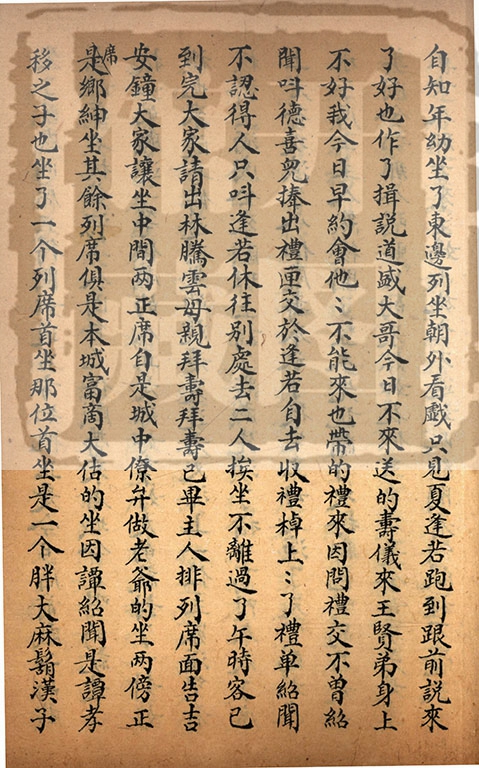 自知年幼坐了東邊列坐朝外看戲只見夏逢若跑到跟前説來
了好也作了揖説道盛大哥今日不來送的壽儀來王賢弟身上
不好我今日早約會他〻不能來也帶的禮來因問禮交不曽紹
聞呌德喜兒捧出禮匣交於逢若自去收禮棹上〻了禮单紹聞
不認得人只呌逢若休往别處去二人挨坐不離過了午時客已
到完大家請出林騰雲母親拜壽拜壽已畢主人排列席面告吉
安鐘大家讓坐中間两正席自是城中僚弁做老爺的坐两傍正
席是鄉紳坐其餘列席俱是本城富商大估的坐因譚紹聞是譚孝
移之子也坐了一个列席首坐那位首坐是一个胖大麻鬍漢子